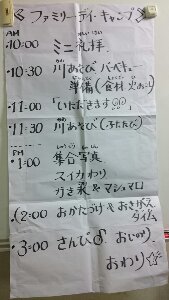 ファミリーデイキャンプ
AM
・10:00 ミニ礼拝.
・10:30 川あそび バーベキュー
準備(食材 火おこし)
・11:00 「いただきます」
・11:30 川あそび (ふたたび)
PM
・1:00 集合写真
スイカわり
かき氷 & マシュマロ
・(2:00 おかたづけ &
タイム
・3:00 さんび おいのり.
おわり☆